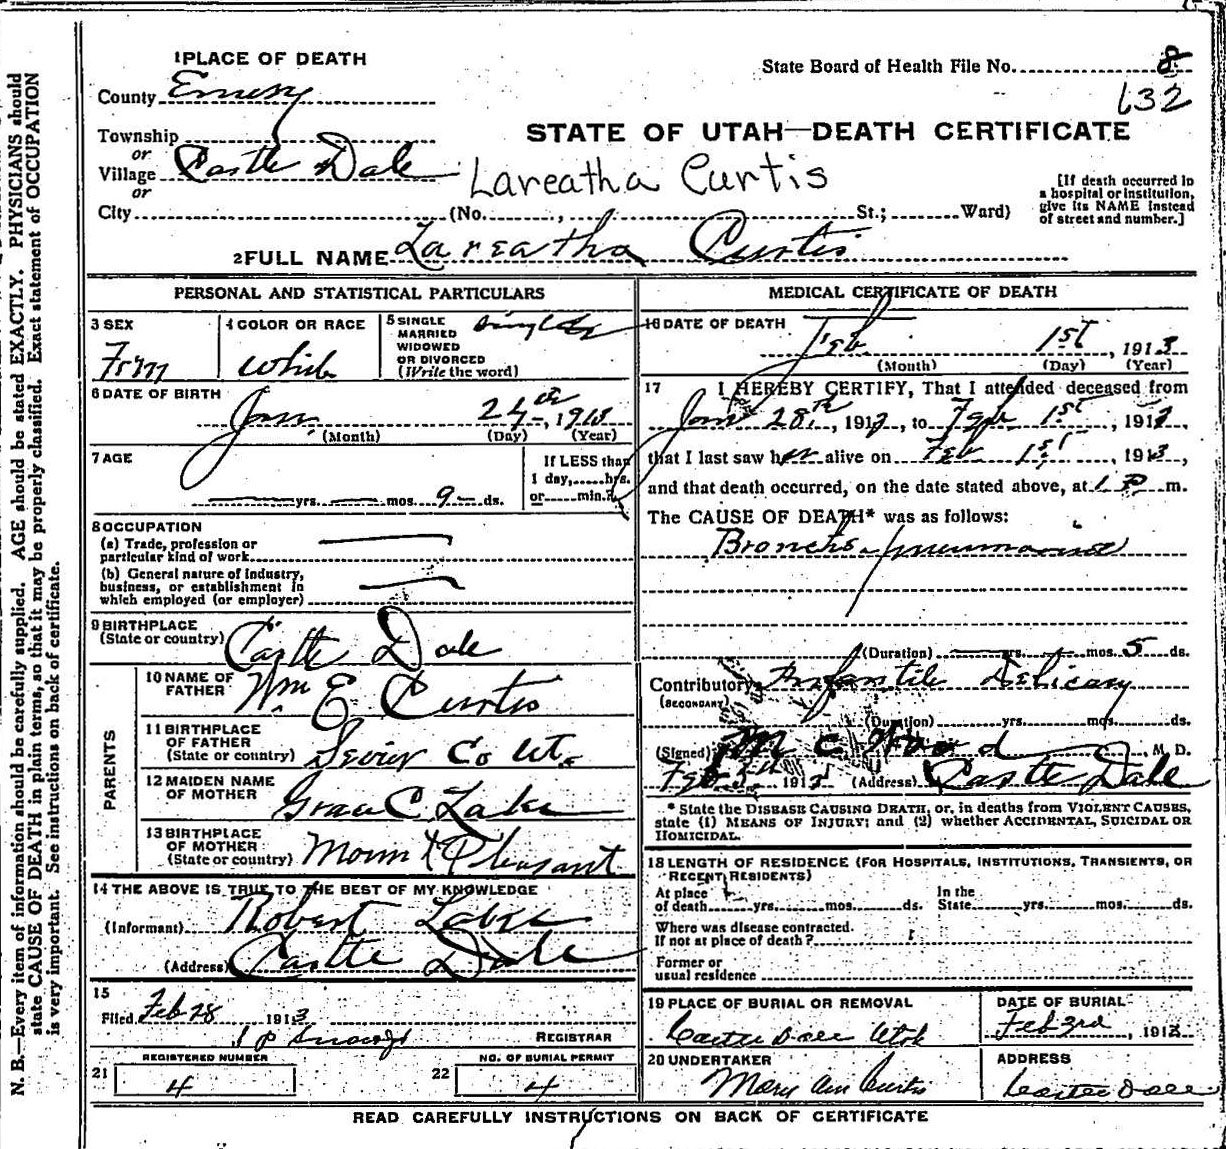 1 PLACE OF DEATH
State Board of Health File No. 8
County Emery
632
Township
STATE OF UTAH—DEATH CERTIFICATE
or
Village Castle Dale
Lareatha Curtis
or
[If death occurred in a hospital or institution, give its NAME instead of street and number.]
City (No. , St.; Ward)
2 FULL NAME Lareatha Curtis
PERSONAL AND STATISTICAL PARTICULARS
3 SEX Fem
4 COLOR OR RACE White
5 SINGLE MARRIED WIDOWED OR DIVORCED (Write the word)
6 DATE OF BIRTH
Jan. 24th, 1913
(Month) (Day) (Year)
7 AGE
yrs. mos. 9 ds.
If LESS than 1 day, hrs. or min.?
8 OCCUPATION
(a) Trade, profession or particular kind of work
(b) General nature of industry, business, or establishment in which employed (or employer)
9 BIRTHPLACE (State or country) Castle Dale
PARENTS
10 NAME OF FATHER Wm E Curtis
11 BIRTHPLACE OF FATHER (State or country) Sevier Co Ut.
12 MAIDEN NAME OF MOTHER Grace C. Lake
13 BIRTHPLACE OF MOTHER (State or country) Mount Pleasant
14 THE ABOVE IS TRUE TO THE BEST OF MY KNOWLEDGE
(Informant) Robert Lake
(Address) Castle Dale
15
Filed Feb 28 1913
REGISTRAR
REGISTERED NUMBER
21 4
NO. OF BURIAL PERMIT
22 4
MEDICAL CERTIFICATE OF DEATH
16 DATE OF DEATH
Feb 1st, 1913
(Month) (Day) (Year)
17 I HEREBY CERTIFY, That I attended deceased from
Jan 28th, 1913, to Feb 1st, 1913
that I last saw her alive on Feb 1st, 1913,
and that death occurred, on the date stated above, at 1 P m.
The CAUSE OF DEATH* was as follows:
Broncho-pneumonia
(Duration) yrs. mos. 5 ds.
Contributory Infantile Delicacy
(SECONDARY)
(Duration) yrs. mos. ds.
(Signed) M C Wood M. D.
Feb 191 (Address) Castle Dale
* State the DISEASE CAUSING DEATH, or, in deaths from VIOLENT CAUSES, state (1) MEANS OF INJURY; and (2) whether ACCIDENTAL, SUICIDAL OR HOMICIDAL.
18 LENGTH OF RESIDENCE (FOR HOSPITALS, INSTITUTIONS, TRANSIENTS, OR RECENT RESIDENTS)
At place of death yrs. mos. ds. In the State yrs. mos. ds.
Where was disease contracted. If not at place of death?
Former or usual residence
19 PLACE OF BURIAL OR REMOVAL Castle Dale Utah
DATE OF BURIAL Feb 3rd, 1913
20 UNDERTAKER Mary Ann Curtis
ADDRESS Castle Dale
READ CAREFULLY INSTRUCTIONS ON BACK OF CERTIFICATE
N. B.—Every item of information should be carefully supplied. AGE should be stated EXACTLY. PHYSICIANS should
state CAUSE OF DEATH in plain terms, so that it may be properly classified. Exact statement of OCCUPATION
is very important. See instructions on back of certificate.